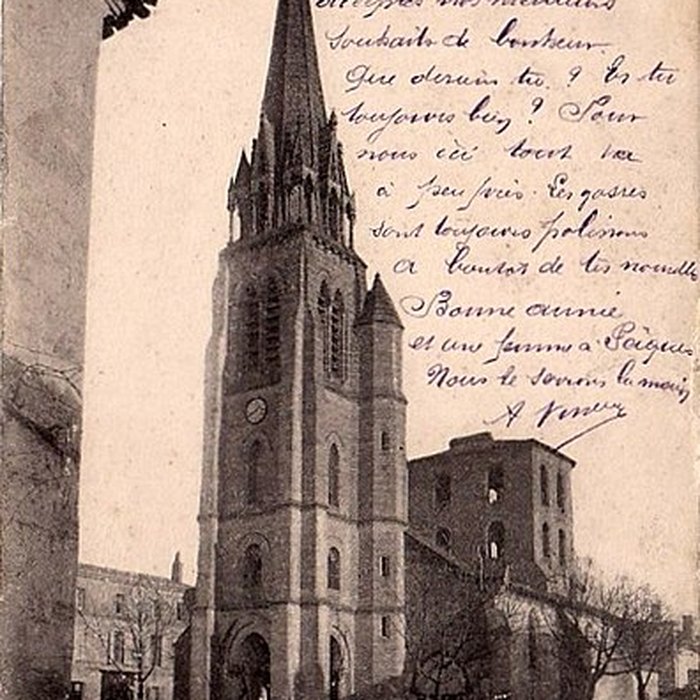 nos meilleurs
souhaits de bonheur.
Que deviens tu ? Es tu
toujours bien ? Pour
nous ici tout va
à peu près. Les gosses
sont toujours polissons
A bientot de tes nouvelles
Bonne année
et une femme à Pâques
Nous te serrons la main
A